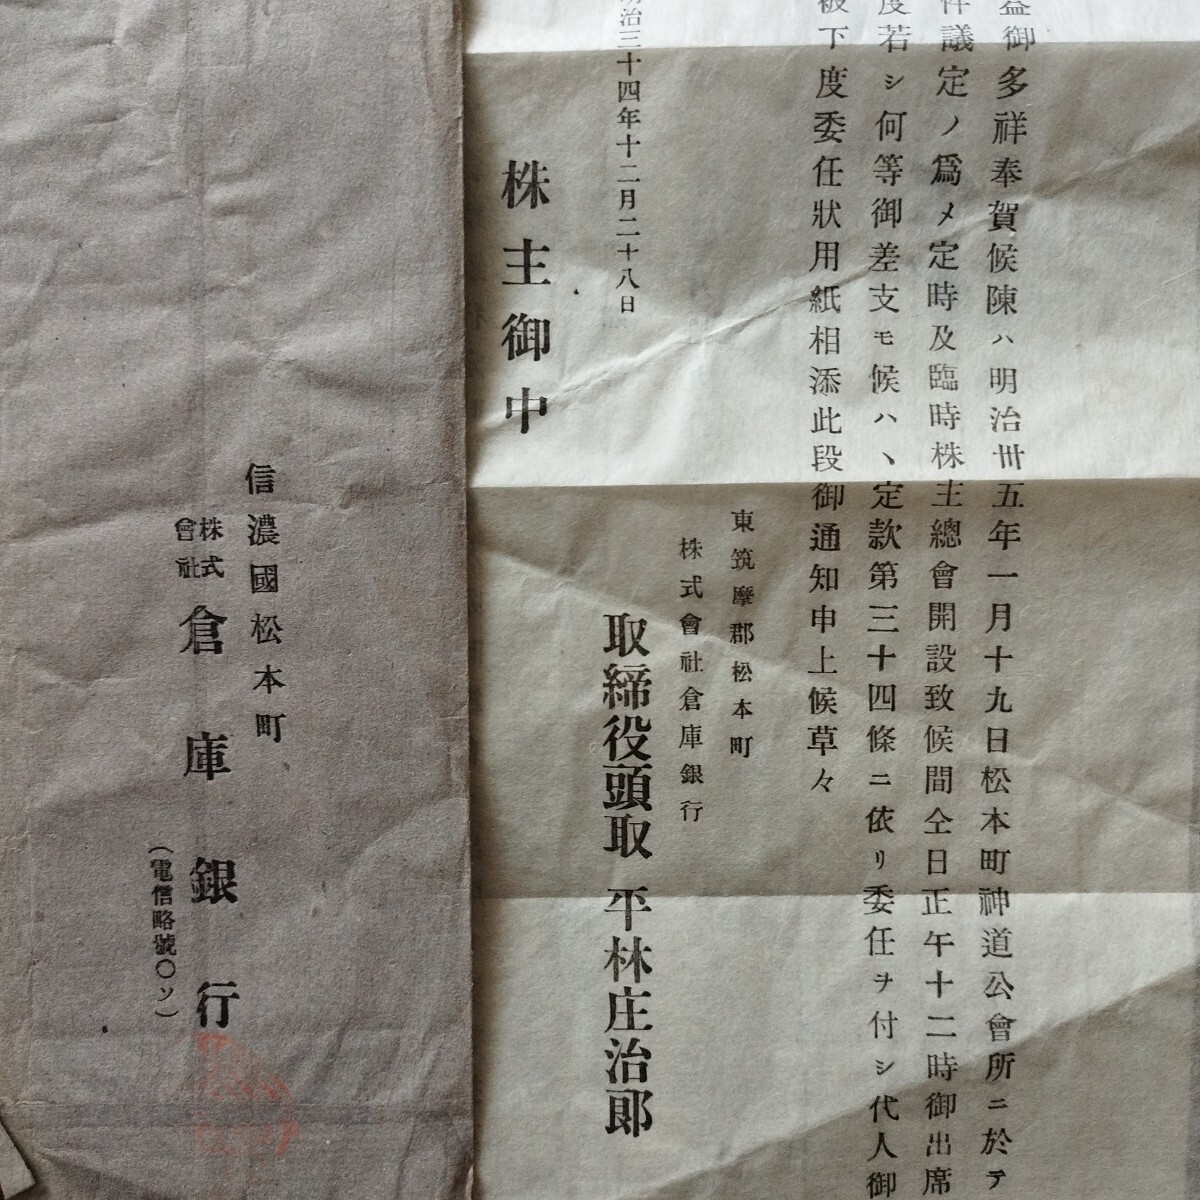 益御多祥奉賀候陳ハ明治卅五年一月十九日松本町神道公會所ニ於テ
件議定ノ爲メ定時及臨時株主總會開設致候間仝日正午十二時御出席
度若シ何等御差支モ候ハヽ定款第三十四條ニ依リ委任ヲ付シ代人御
被下度委任狀用紙相添此段御通知申上候草々
東筑摩郡松本町
株式會社倉庫銀行
取締役頭取 平林庄治郎
明治三十四年十二月二十八日
株主御中
信濃國松本町
株式會社倉庫銀行
(電信略號〇ソ)